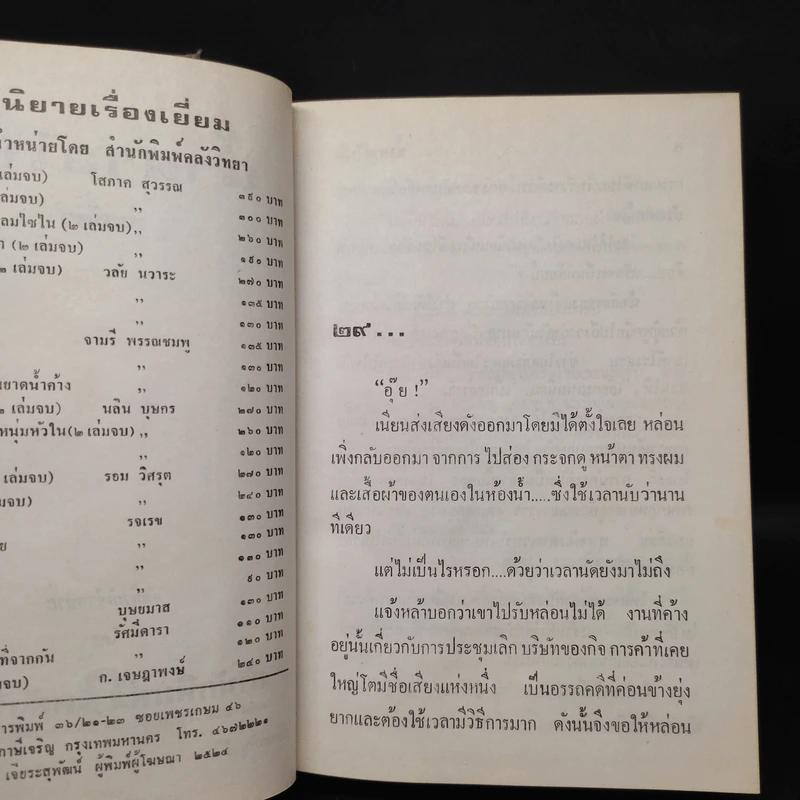 นิยายเรื่องเยี่ยม
สำนักพิมพ์คลังวิทยา
เล่มจบ) โสภาค สุวรรณ ๓๕๐ บาท
เล่มจบ) ,, ๓๐๐ บาท
ลมไซใน (๒ เล่มจบ) ,, ๒๖๐ บาท
(๒ เล่มจบ) ,, ๑๕๐ บาท
เล่มจบ) วลัย นวาระ ๒๗๐ บาท
,, ๑๓๕ บาท
,, ๑๓๐ บาท
จามรี พรรณชมพู ๑๓๕ บาท
,, ๑๓๐ บาท
หยาดน้ำค้าง ,, ๑๒๐ บาท
เล่มจบ) นลิน บุษกร ๒๗๐ บาท
หนุ่มหัวใน(๒ เล่มจบ) ,, ๒๖๐ บาท
,, ๑๒๐ บาท
เล่มจบ) รอม วิศรุต ๒๗๐ บาท
มจบ) ,, ๒๔๐ บาท
รจเรข ๑๓๐ บาท
,, ๑๓๐ บาท
,, ๑๓๐ บาท
,, ๙๐ บาท
บุษยมาส ๑๓๐ บาท
รัศมีดารา ๑๑๐ บาท
ที่จากกัน ,, ๑๒๐ บาท
จบ) ก. เจษฎาพงษ์ ๒๔๐ บาท
การพิมพ์ ๓๖/๒๑-๒๓ ซอยเพชรเกษม ๔๖
ภาษีเจริญ กรุงเทพมหานคร โทร. ๔๖๗๒๒๒๑
เจียระสุพัฒน์ ผู้พิมพ์ผู้โฆษณา ๒๕๒๔
๒๙...
“อุ๊ย !”
เนียนส่งเสียงดังออกมาโดยมิได้ตั้งใจเลย หล่อน
เพิ่งกลับออกมา จากการ ไปส่อง กระจกดู หน้าตา ทรงผม
และเสื้อผ้าของตนเองในห้องน้ำ.....ซึ่งใช้เวลานับว่านาน
ทีเดียว
แต่ไม่เป็นไรหรอก....ด้วยว่าเวลานัดยังมาไม่ถึง
แจ้งหล้าบอกว่าเขาไปรับหล่อนไม่ได้ งานที่ค้าง
อยู่นั้นเกี่ยวกับการประชุมเลิก บริษัทของกิจ การค้าที่เคย
ใหญ่โตมีชื่อเสียงแห่งหนึ่ง เป็นอรรถคดีที่ค่อนข้างยุ่ง
ยากและต้องใช้เวลามีวิธีการมาก ดังนั้นจึงขอให้หล่อน